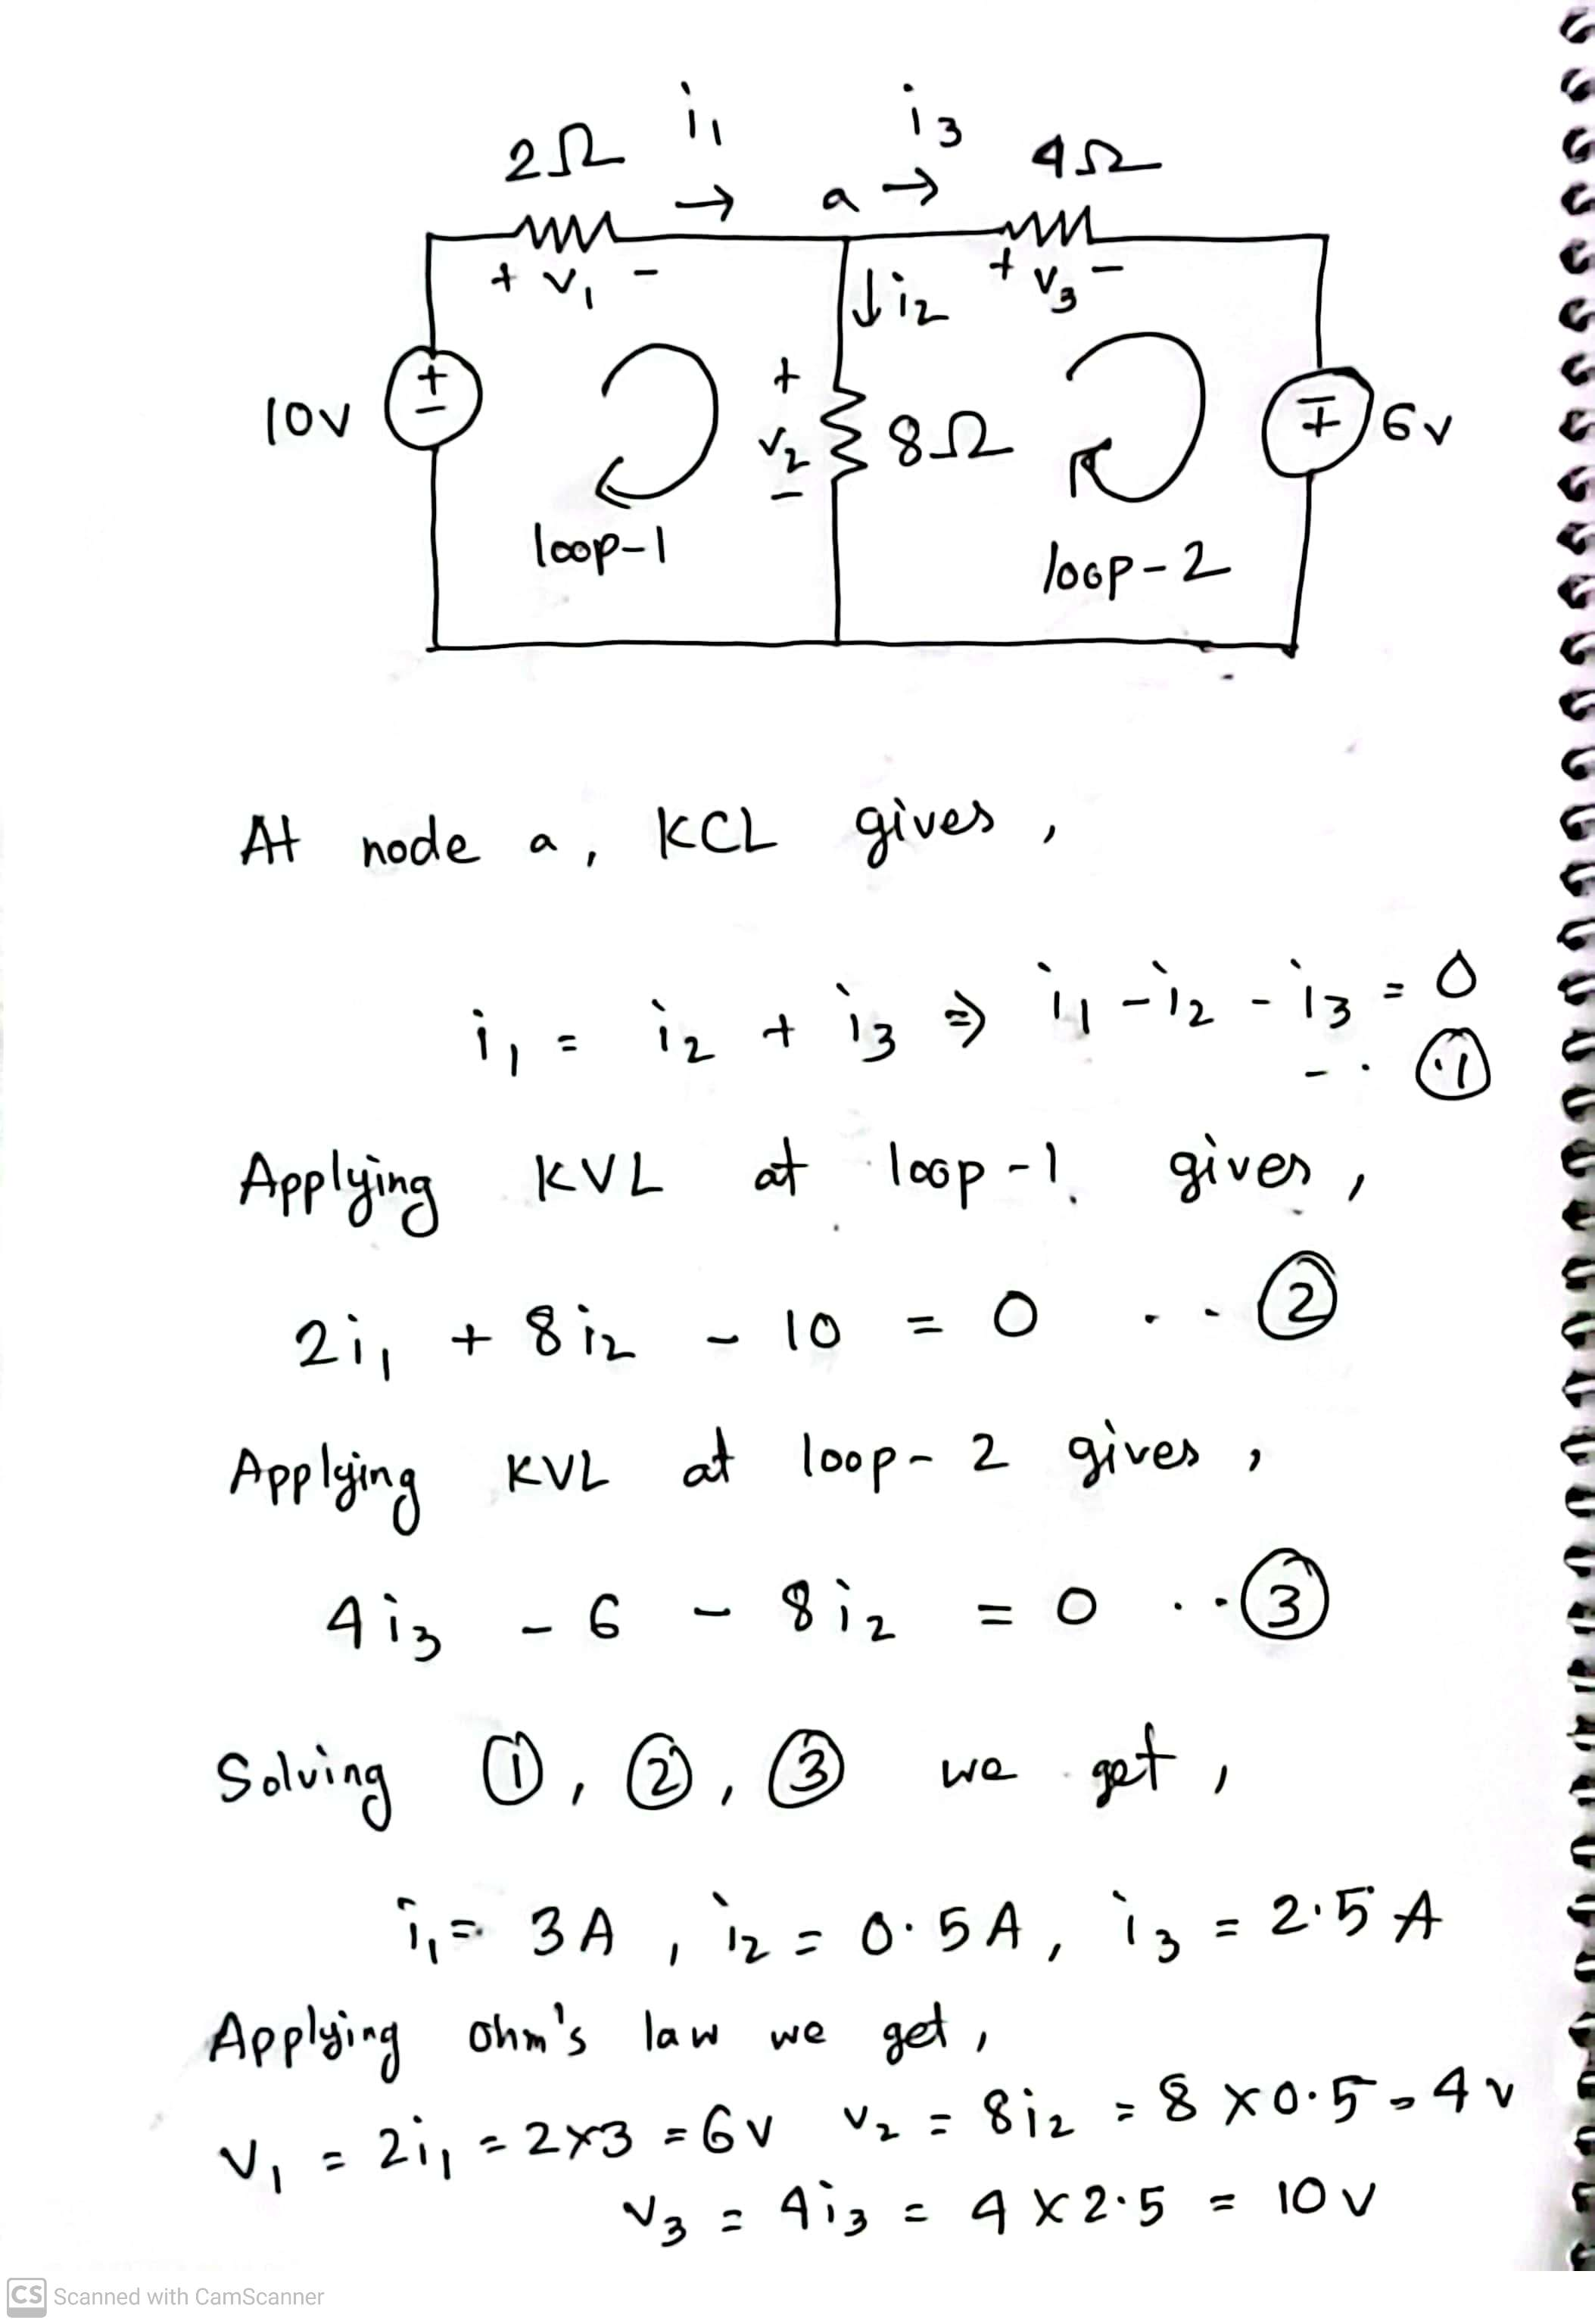 2Ω i₁ i₃ 4Ω
→ a →
+ v₁ - ↓i₂ + v₃ -
10v + - + v₂ - 8Ω - + 6v
loop-1 loop-2
At node a, KCL gives,
i₁ = i₂ + i₃ ⇒ i₁ - i₂ - i₃ = 0
-. ①
Applying KVL at loop-1 gives,
2i₁ + 8i₂ - 10 = 0 .. ②
Applying KVL at loop-2 gives,
4i₃ - 6 - 8i₂ = 0 .. ③
Solving ①, ②, ③ we get,
i₁ = 3A, i₂ = 0.5A, i₃ = 2.5A
Applying ohm's law we get,
v₁ = 2i₁ = 2×3 = 6v v₂ = 8i₂ = 8×0.5 = 4v
v₃ = 4i₃ = 4×2.5 = 10v
CS Scanned with CamScanner